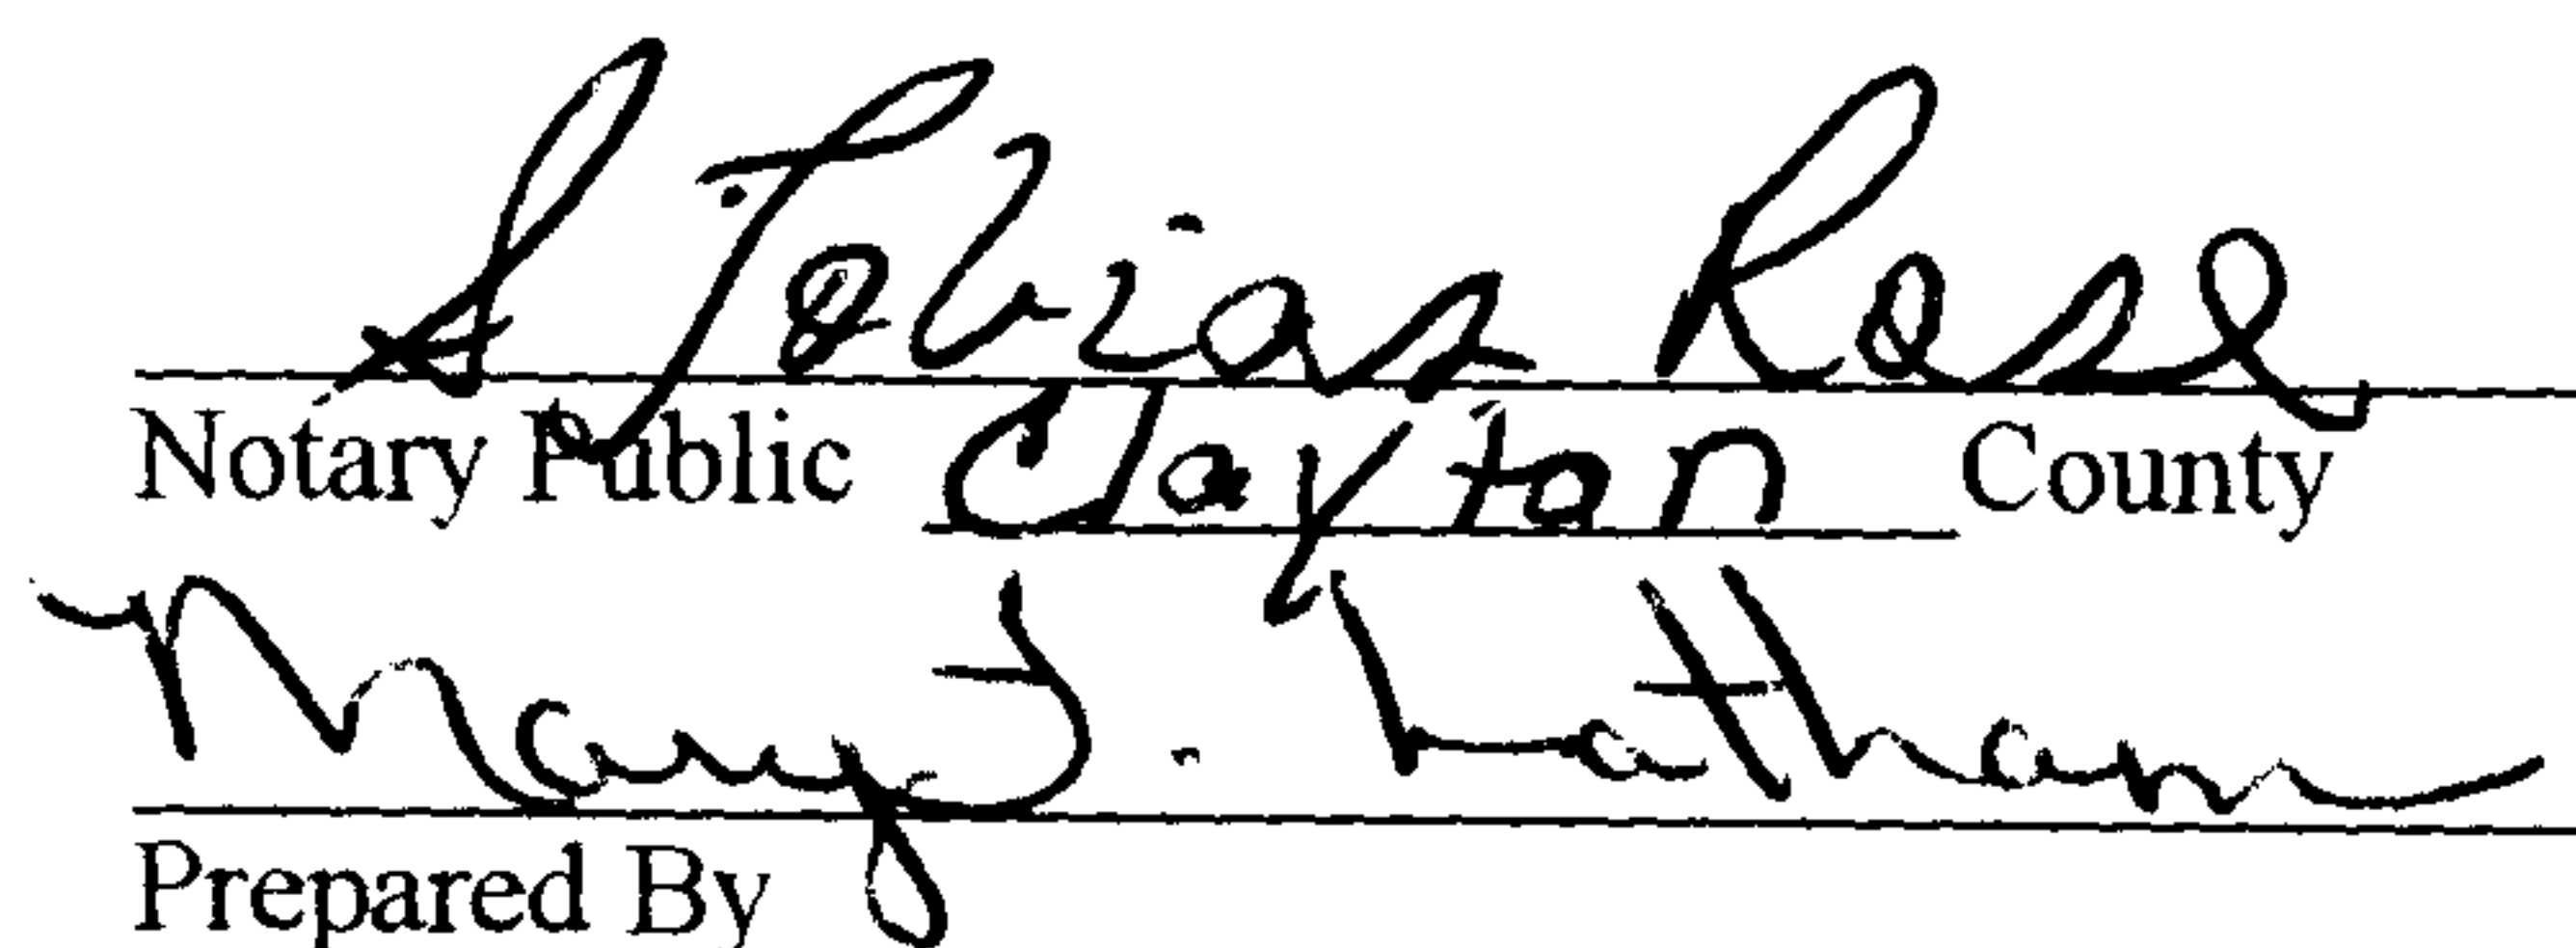 S. Tobias Rose
Notary Public Clayton County
Mary J. Latham
Prepared By